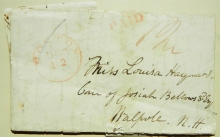 PAID
12
Miss Louisa Hayward
Care of Josiah Bellows Esq
Walpole. N.H